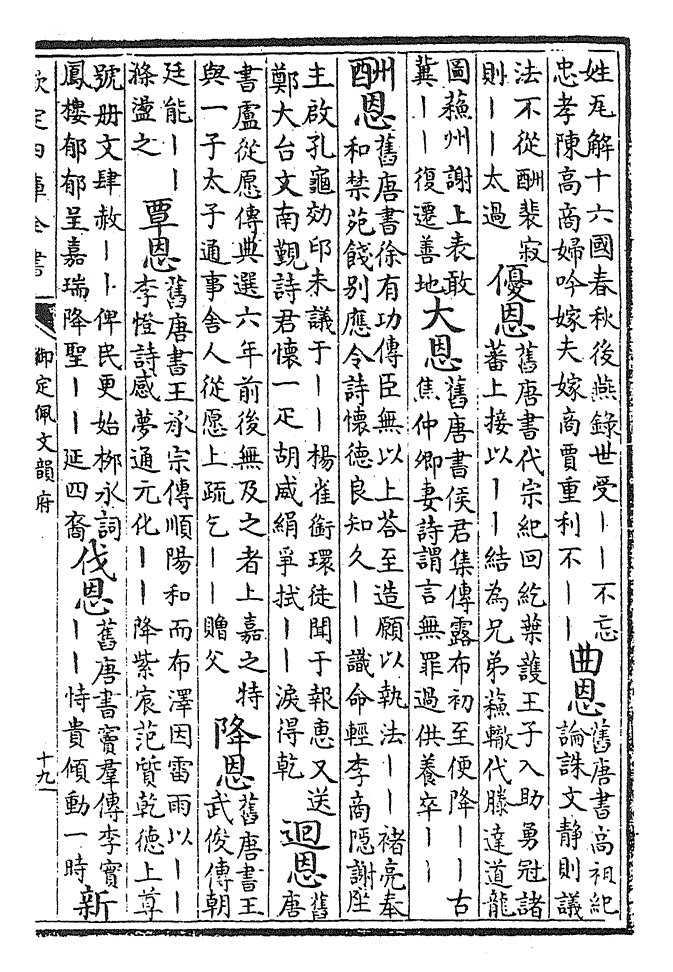 姓瓦解十六國春秋後燕錄世受丨丨不忘
忠孝陳高商婦吟嫁夫嫁商賈重利不丨丨
曲恩
舊唐書高祖紀
論誅文靜則議
法不從酬裴寂
則丨丨太過
優恩
舊唐書代宗紀回紇葉護王子入助勇冠諸
蕃上接以丨丨結為兄弟蘓轍代滕達道龍
圖蘓州謝上表敢
冀丨丨復遷善地
大恩
舊唐書侯君集傳露布初至便降丨丨古
焦仲卿妻詩謂言無罪過供養卒丨丨
酬恩
舊唐書徐有功傳臣無以上荅至造願以執法丨丨褚亮奉
和禁苑餞别應令詩懷德良知久丨丨識命輕李商隱謝座
主啟孔龜効印未議于丨丨楊雀銜環徒聞于報惠又送
鄭大台文南覲詩君懷一疋胡威絹爭拭丨丨淚得乾
迴恩
舊
唐
書盧從愿傳典選六年前後無及之者上嘉之特
與一子太子通事舍人從愿上疏乞丨丨贈父
降恩
舊唐書王
武俊傳朝
廷能丨丨
滌盪之
覃恩
舊唐書王承宗傳順陽和而布澤因雷雨以丨丨
李憕詩感夢通元化丨丨降紫宸范質乾德上尊
號册文肆赦丨丨俾民更始栁永詞
鳳樓郁郁呈嘉瑞降聖丨丨延四裔
伐恩
舊唐書竇羣傳李實
丨丨恃貴傾動一時
新
欽定四庫全書
御定佩文韻府
十九